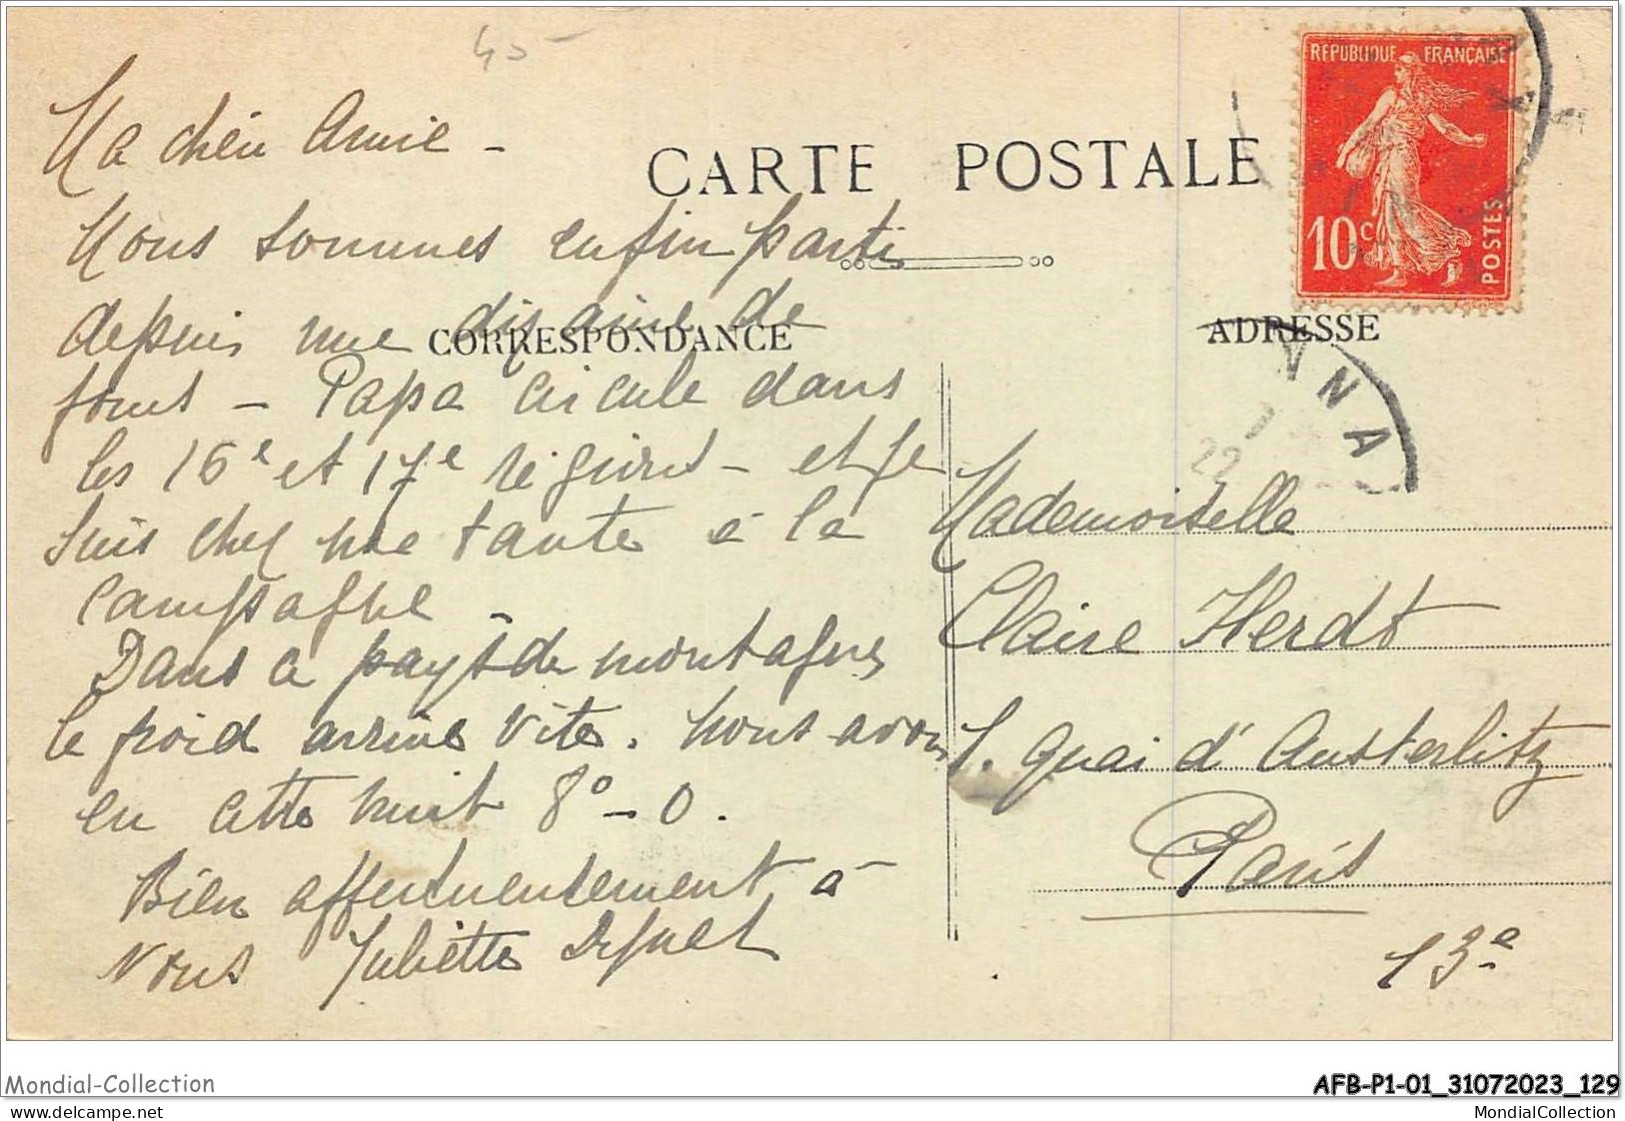 45-
Ma chère Amie -
CARTE POSTALE
RÉPUBLIQUE FRANÇAISE
10c
POSTES
Nous sommes enfin parti
depuis une dizaine de
CORRESPONDANCE
ADRESSE
jours - Papa circule dans
les 16e et 17e régions - et je
suis chez une tante à la
campagne -
Dans ce pays de montagnes
le froid arrive vite. Nous avons
eu cette nuit 8° - 0.
Bien affectueusement à
vous Juliette
Mademoiselle
Claire Herdt
1. quai d'Austerlitz
Paris
13e
22
Mondial-Collection
AFB-P1-01_31072023_129
MondialCollection